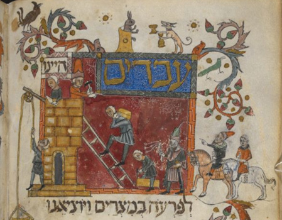 עבדים
היינו
לפרעה במצרים ויוציאנו